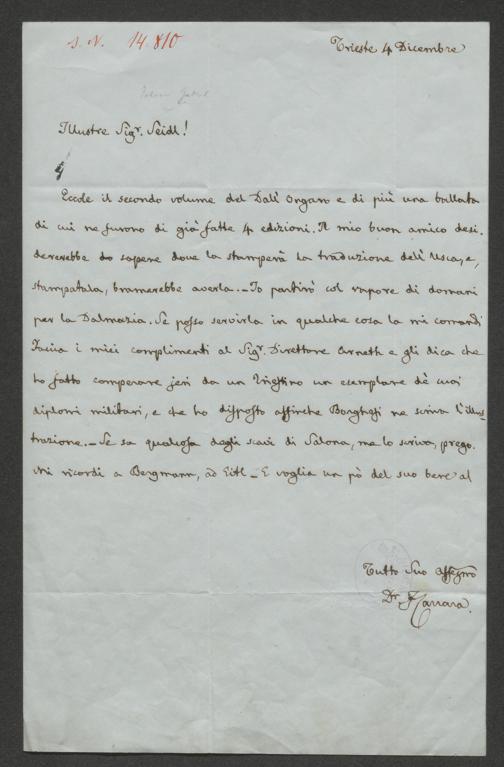 J. N. 14.810
Trieste 4 Dicembre
Illustre Sigr. Seidl!
Eccole il secondo volume del Dall' Ongaro e di più una ballata
di cui ne furono di già fatte 4 edizioni. Il mio buon amico desi-
dererebbe do sapere dove la stamperà la traduzione dell' Usca, e,
stampatala, bramerebbe averla. – Io partirò col vapore di domani
per la Dalmazia. Se posso servirla in qualche cosa la mi comandi
Faccia i miei complimenti al Sigr. Direttore Arneth e gli dica che
ho fatto comperare jeri da un Triestino un esemplare de' suoi
diplomi militari, e che ho disposto affinche Borghesi ne scriva l'illus-
trazione. – Se sa qualcosa degli scavi di Salona, me lo scriva, prego.
Mi ricordi a Bergmann, ad Eitl – E voglia un pò del suo bene al
Tutto Suo affezmo
Dr. F Carrara.